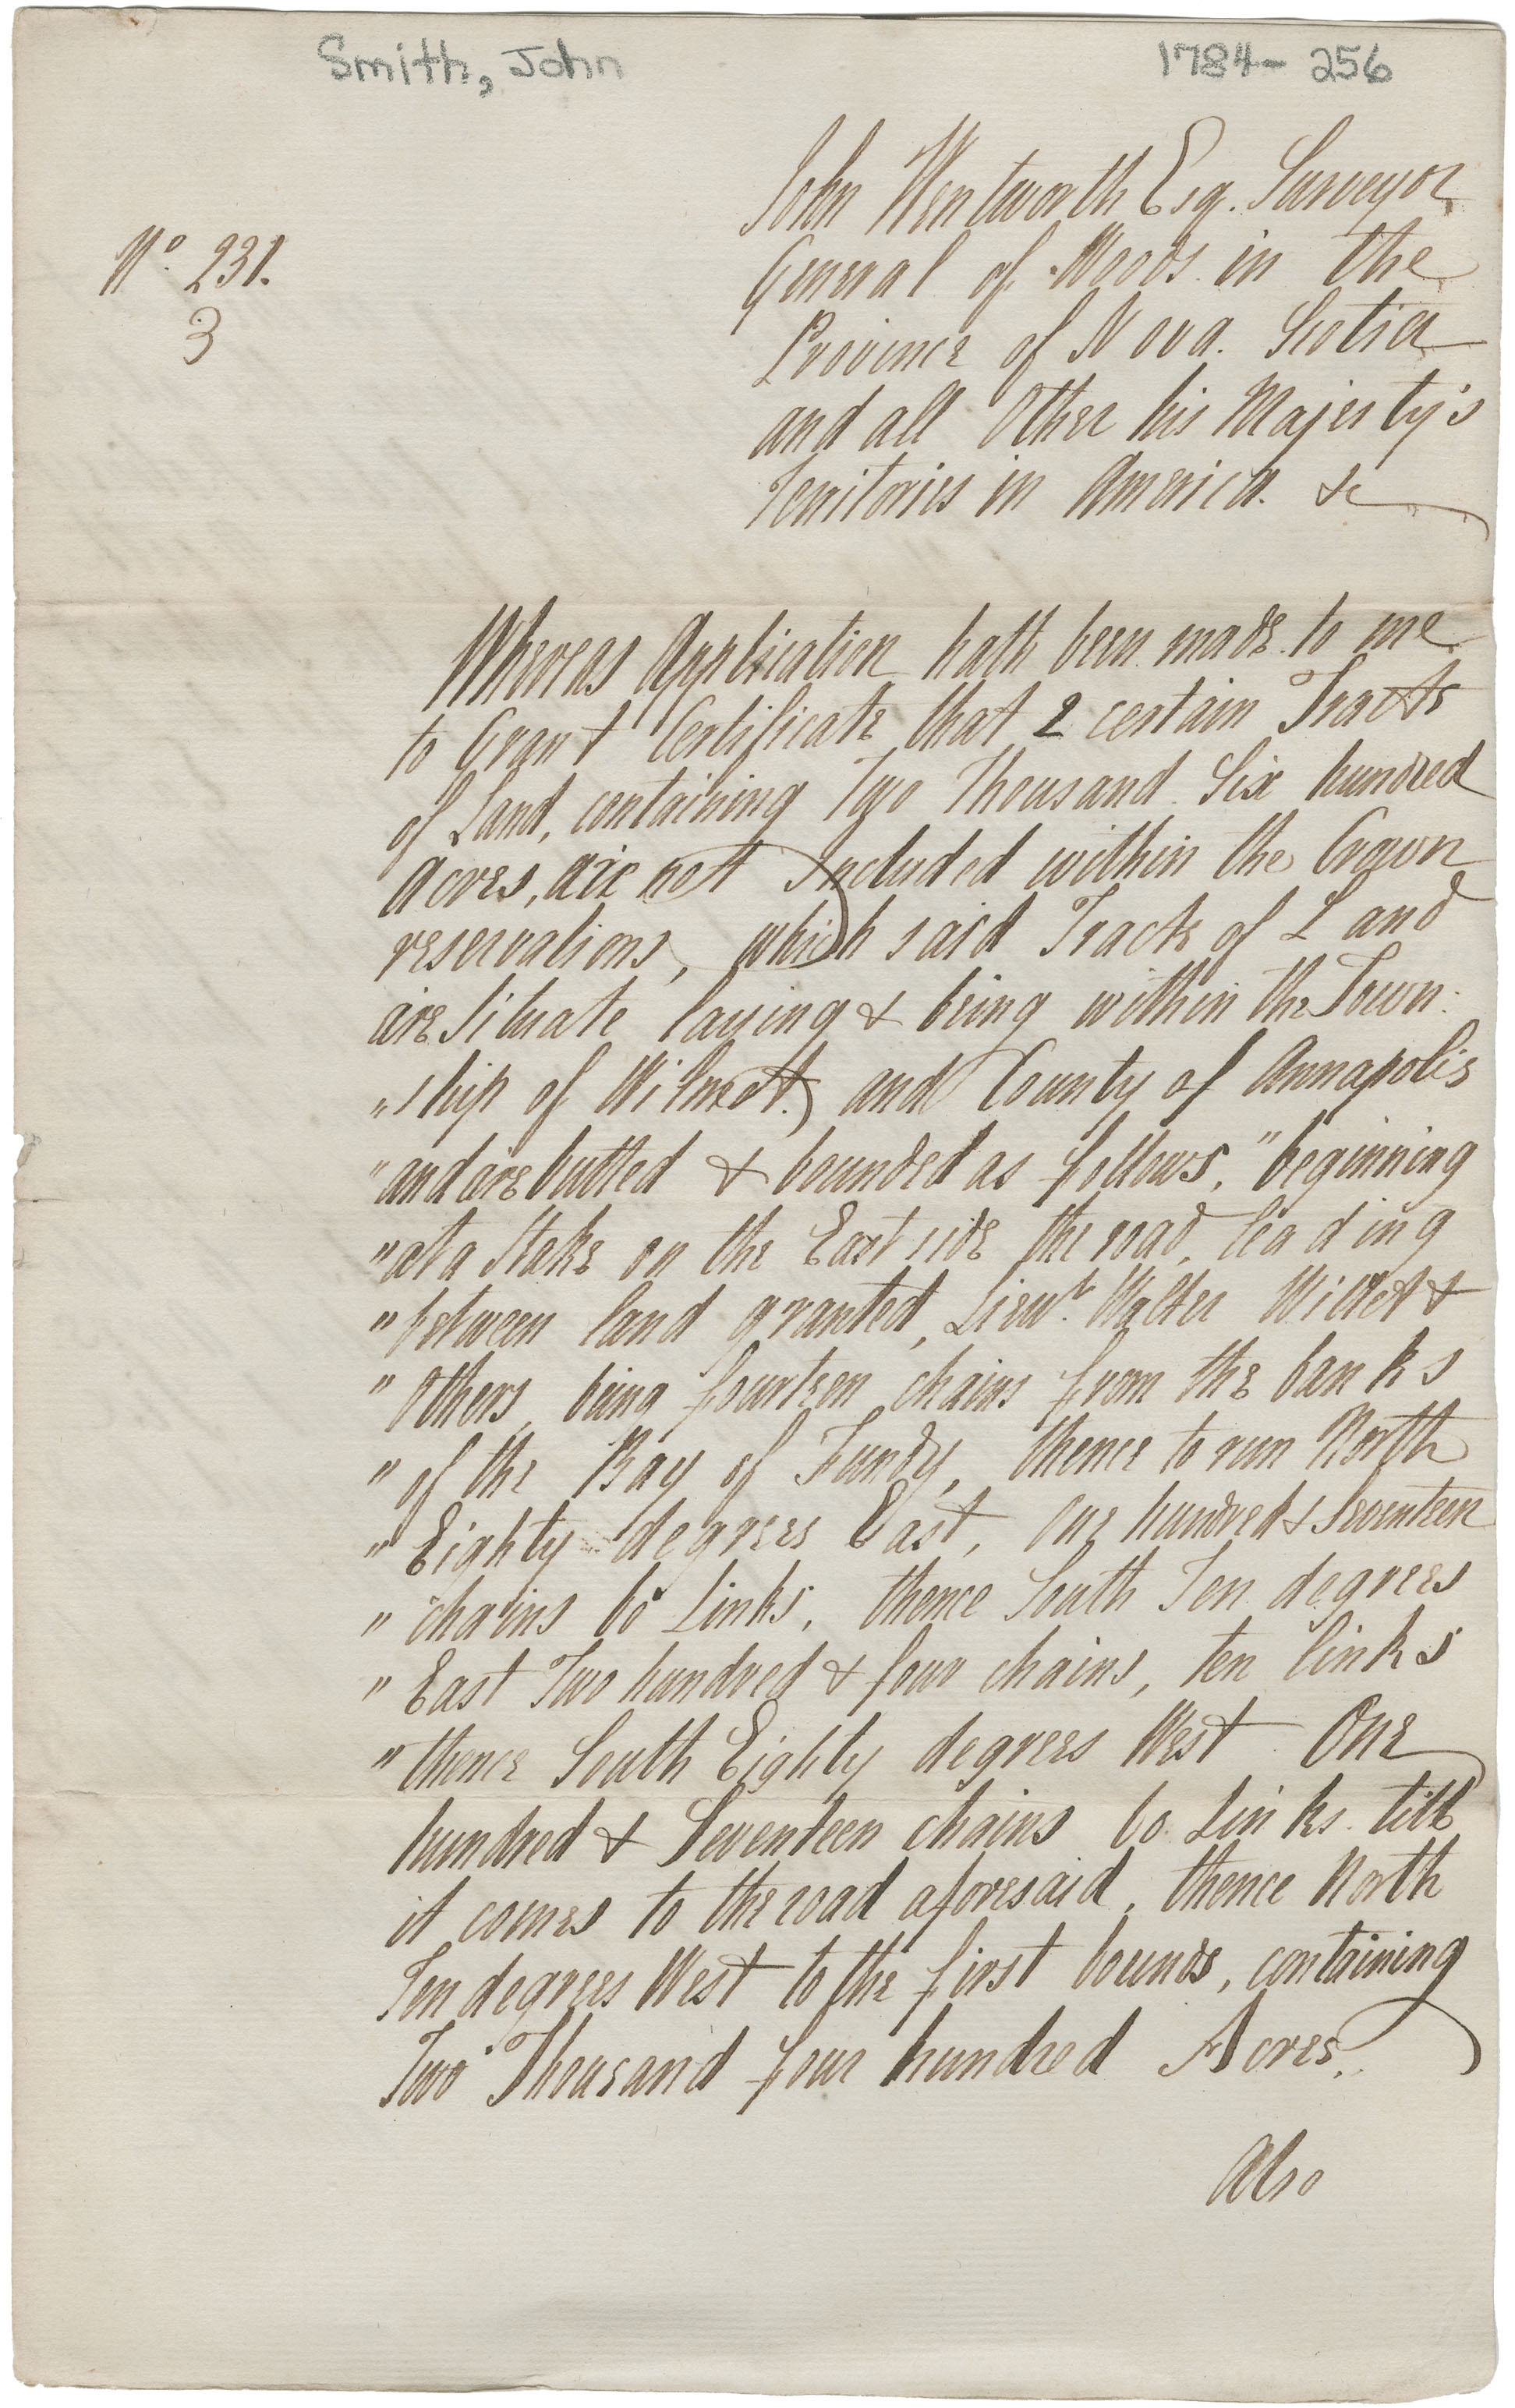 Smith, John
1784- 256
John Wentworth Esq. Surveyor
General of Woods in the
Province of Nova. Scotia
and all Other his Majesty's
Territories in America. &c
No. 231.
3
Whereas Application hath been made to me
to Grant Certificate that 2 certain Tracts
of Land, containing Two Thousand Six hundred
Acres, are not Included within the Crown
reservations, which said Tracts of Land
are Situate laying & being within the Town-
"ship of Wilmot. and County of Annapolis
"and are butted & bounded as follows, "beginning
"at a Stake on the East side the road, leading
"between land granted, Lieut. Walter Willet &
"Others, being fourteen chains from the banks
"of the Bay of Fundy, thence to run North
"Eighty degrees East, One hundred & Seventeen
"chains 60 Links, thence South Ten degrees
"East Two hundred & four chains, ten links
"thence South Eighty degrees West One
hundred & Seventeen chains 60 Links. till
it comes to the road aforesaid, thence North
Ten degrees West to the first bounds, containing
Two Thousand four hundred Acres.
Also